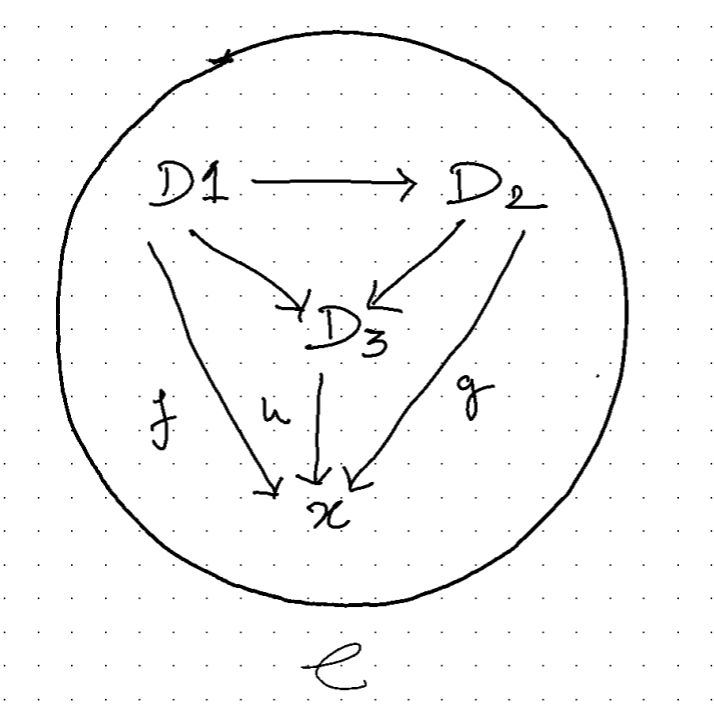 D1 D2
D3
f h g
x
C